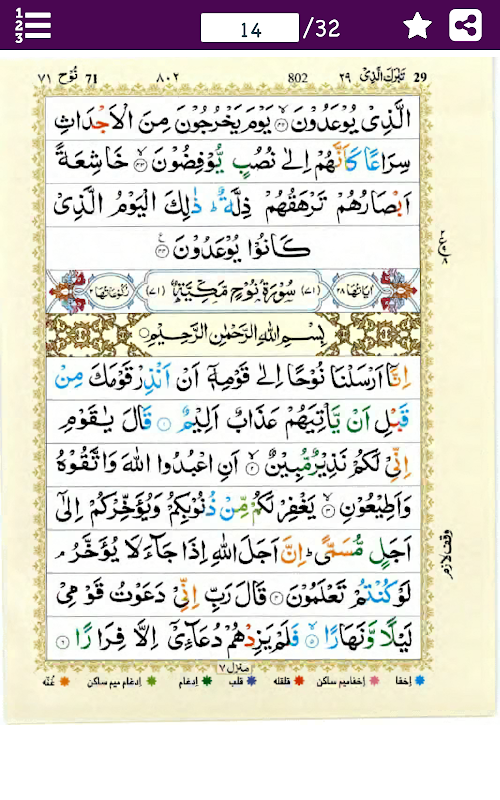 14 /32
29 تَبٰرَكَ الَّذِیْ ٢٩ 802 ٨٠٢ 71 نُوْح ٧١
الَّذِیْ یُوْعَدُوْنَ ﴿۴۲﴾ یَوْمَ یَخْرُجُوْنَ مِنَ الْاَجْدَاثِ
سِرَاعًا كَاَنَّهُمْ اِلٰى نُصُبٍ یُّوْفِضُوْنَ ﴿۴۳﴾ خَاشِعَةً
اَبْصَارُهُمْ تَرْهَقُهُمْ ذِلَّةٌ ؕ ذٰلِكَ الْیَوْمُ الَّذِیْ
كَانُوْا یُوْعَدُوْنَ ﴿۴۴﴾
اٰیَاتُهَا ٢٨ (٧١) سُوْرَةُ نُوْحٍ مَّكِّیَّةٌ (٧١) رُكُوْعَاتُهَا ٢
بِسْمِ اللّٰهِ الرَّحْمٰنِ الرَّحِیْمِ
اِنَّاۤ اَرْسَلْنَا نُوْحًا اِلٰى قَوْمِهٖۤ اَنْ اَنْذِرْ قَوْمَكَ مِنْ
قَبْلِ اَنْ یَّاْتِیَهُمْ عَذَابٌ اَلِیْمٌ ﴿۱﴾ قَالَ یٰقَوْمِ
اِنِّیْ لَكُمْ نَذِیْرٌ مُّبِیْنٌ ﴿۲﴾ اَنِ اعْبُدُوا اللّٰهَ وَاتَّقُوْهُ
وَاَطِیْعُوْنِ ﴿۳﴾ یَغْفِرْ لَكُمْ مِّنْ ذُنُوْبِكُمْ وَیُؤَخِّرْكُمْ اِلٰۤى
اَجَلٍ مُّسَمًّى ؕ اِنَّ اَجَلَ اللّٰهِ اِذَا جَآءَ لَا یُؤَخَّرُ ۘ
وقف لازم
لَوْ كُنْتُمْ تَعْلَمُوْنَ ﴿۴﴾ قَالَ رَبِّ اِنِّیْ دَعَوْتُ قَوْمِیْ
لَیْلًا وَّنَهَارًا ﴿۵﴾ فَلَمْ یَزِدْهُمْ دُعَآءِیْۤ اِلَّا فِرَارًا ﴿۶﴾
منزل ٧
اِخفا اِخفامیم ساکن قلقله قلب اِدغام اِدغام میم ساکن غُنّه